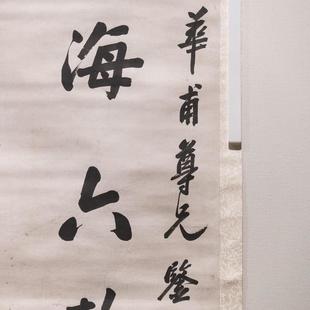 華甫尊兄鑒
海六